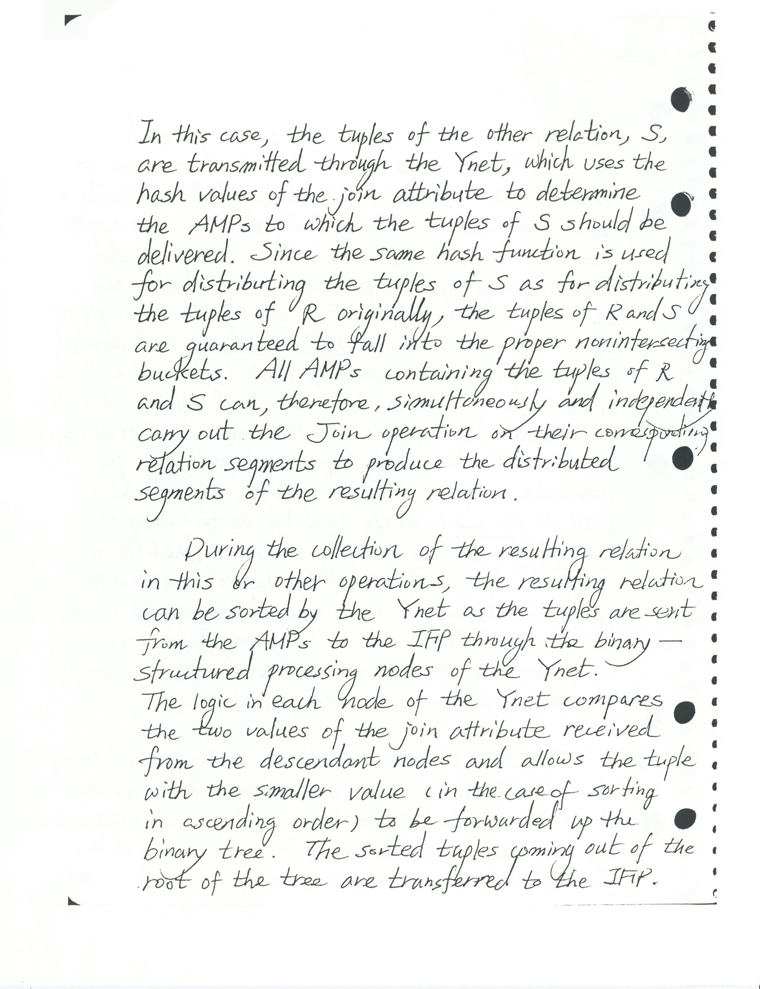 In this case, the tuples of the other relation, S,
are transmitted through the Ynet, which uses the
hash values of the join attribute to determine
the AMPs to which the tuples of S should be
delivered. Since the same hash function is used
for distributing the tuples of S as for distributing
the tuples of R originally, the tuples of R and S
are guaranteed to fall into the proper nonintersecting
buckets. All AMPs containing the tuples of R
and S can, therefore, simultaneously and independently
carry out the Join operation on their corresponding
relation segments to produce the distributed
segments of the resulting relation.
During the collection of the resulting relation
in this or other operations, the resulting relation
can be sorted by the Ynet as the tuples are sent
from the AMPs to the IFP through the binary-
structured processing nodes of the Ynet.
The logic in each node of the Ynet compares
the two values of the join attribute received
from the descendant nodes and allows the tuple
with the smaller value (in the case of sorting
in ascending order) to be forwarded up the
binary tree. The sorted tuples coming out of the
root of the tree are transferred to the IFP.